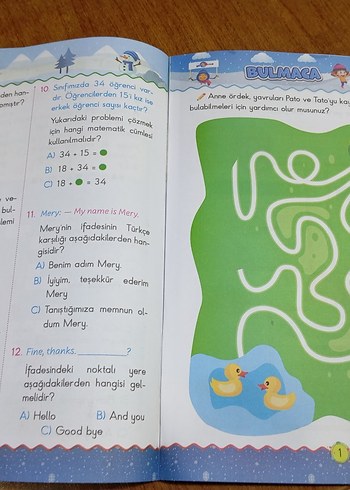 den han-
amıştır?
ve-
bul-
lemi
10. Sınıfımızda 34 öğrenci var-
dır. Öğrencilerden 15'i kız ise
erkek öğrenci sayısı kaçtır?
Yukarıdaki problemi çözmek
için hangi matematik cümlesi
kullanılmalıdır?
A) 34 - 15 =
B) 18 + 34 =
C) 18 + = 34
11. Mery: — My name is Mery.
Mery'nin ifadesinin Türkçe
karşılığı aşağıdakilerden han-
gisidir?
A) Benim adım Mery.
B) İyiyim, teşekkür ederim
Mery
C) Tanıştığımıza memnun ol-
dum Mery.
12. Fine, thanks. __________?
İfadesindeki noktalı yere
aşağıdakilerden hangisi gel-
melidir?
A) Hello B) And you
C) Good bye
BULMACA
Anne ördek, yavruları Pato ve Tato'yu
bulabilmeleri için yardımcı olur musunuz?
1